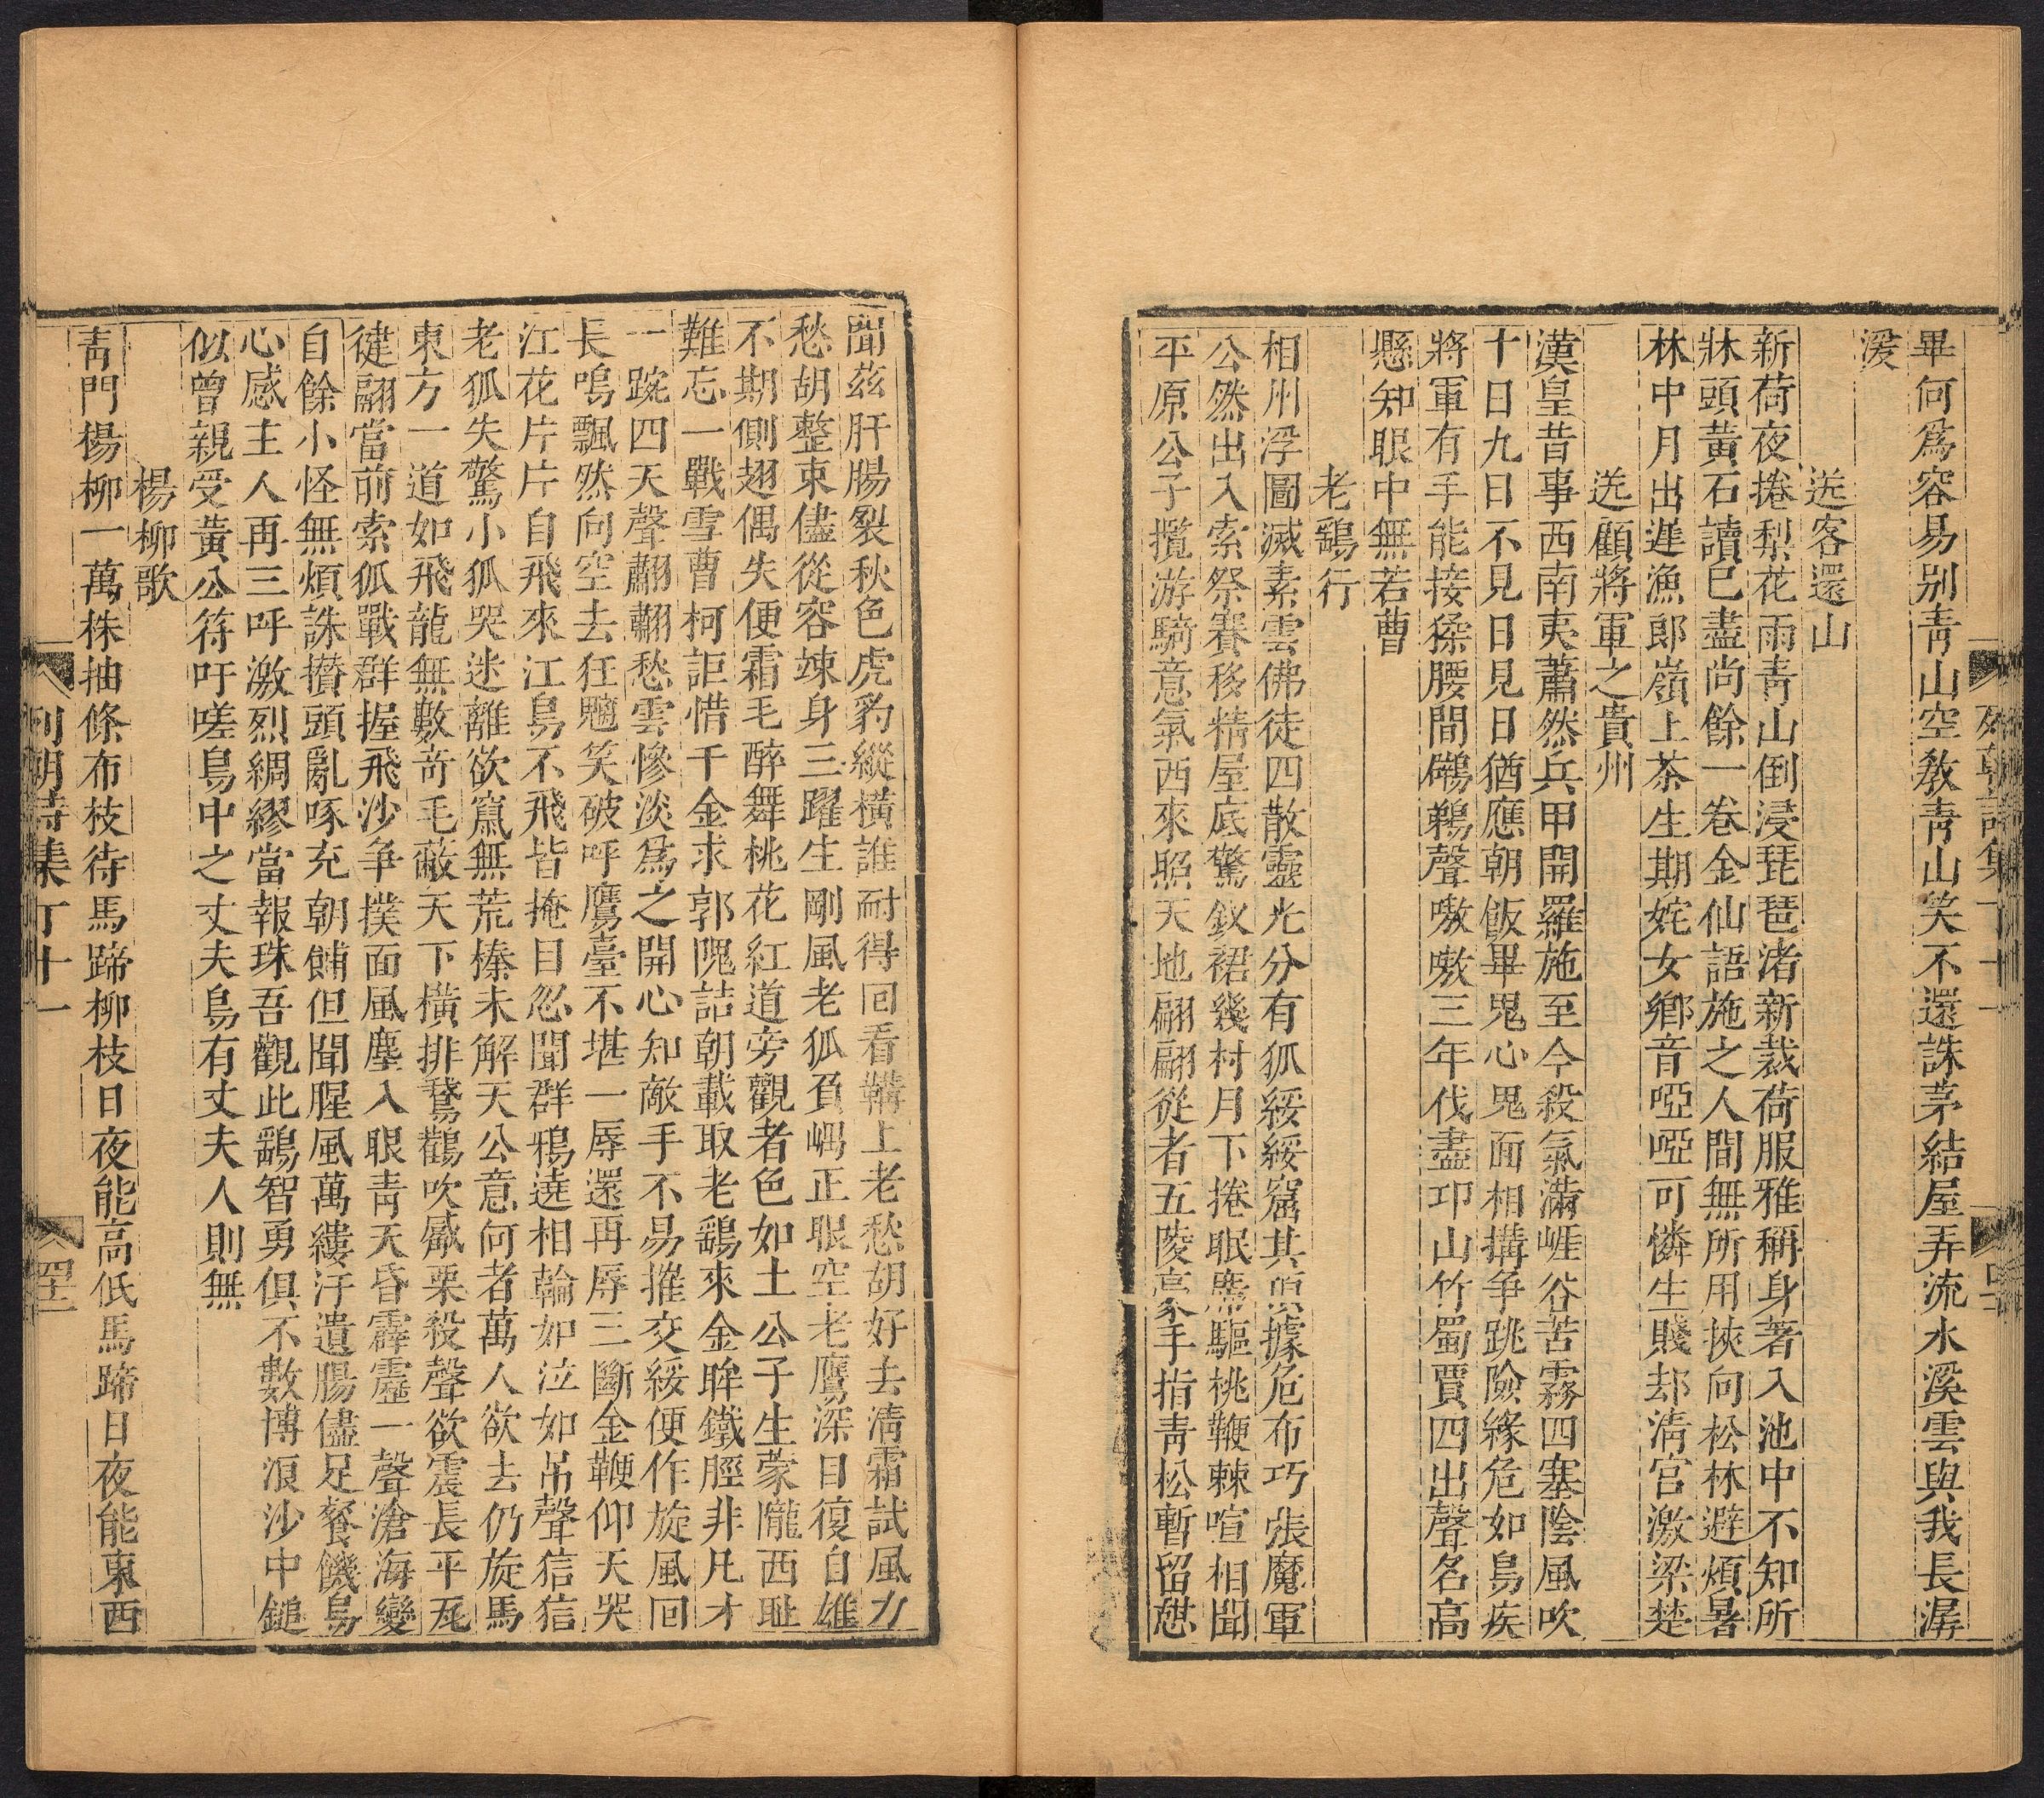 畢何為容易别靑山空敎靑山笑不還誅茅結屋弄流水溪雲與我長潺
湲
送客還山
新荷夜捲梨花雨靑山倒浸琵琶渚新裁荷服雅稱身著入池中不知所
牀頭黃石讀已盡尚餘一卷金仙語施之人間無所用挾向松林避煩暑
林中月出遲漁郎嶺上茶生期姹女鄉音啞啞可憐生賤却淸宮激梁楚
送顧將軍之貴州
漢皇昔事西南夷蕭然兵甲開羅施至今殺氣滿崕谷苦霧四塞陰風吹
十日九日不見日見日猶應朝飯畢鬼心鬼面相搆争跳險緣危如鳥疾
將軍有手能接猱腰間鸊鵜聲嗷嗷三年伐盡卭山竹蜀賈四出聲名高
懸知眼中無若曹
老鷂行
相州浮圖滅素雲佛徒四散靈光分有狐綏綏窟其頂據危布巧張魔軍
公然出入索祭賽移精屋底驚釵裙幾村月下捲眠席驅桃鞭棘喧相聞
平原公子攬游騎意氣西來照天地翩翩從者五陵豪手指靑松暫留憇
聞茲肝腸裂秋色虎豹縱橫誰耐得回看韝上老愁胡好去淸霜試風力
愁胡整束儘從容竦身三躍生剛風老狐負嵎正眼空老鷹深目復自雄
不期側翅偶失便霜毛醉舞桃花紅道旁觀者色如土公子生蒙隴西耻
難忘一戰雪曹柯詎惜千金求郭隗詰朝載取老鷂來金眸鐵脛非凡才
一踠四天聲翽翽愁雲慘淡爲之開心知敵手不易摧交綏便作旋風回
長鳴飄然向空去狂魑笑破呼鷹臺不堪一辱還再辱三斷金鞭仰天哭
江花片片自飛來江鳥不飛皆掩目忽聞群鴉遶相輪如泣如吊聲信信
老狐失驚小狐哭迷離欲竄無荒榛未解天公意何者萬人欲去仍旋馬
東方一道如飛龍無數奇毛蔽天下橫排鵞鸛吹觱栗殺聲欲震長平瓦
健翮當前索狐戰群握飛沙争撲面風塵入眼靑天昏霹靂一聲滄海變
自餘小怪無煩誅攢頭亂啄充朝餔但聞腥風萬縷汙遺腸儘足餐饑鳥
心感主人再三呼激烈綢繆當報珠吾觀此鷂智勇俱不數博浪沙中鎚
似曾親受黃公符吁嗟鳥中之丈夫鳥有丈夫人則無
楊柳歌
靑門楊柳一萬株抽條布枝待馬蹄柳枝日夜能高低馬蹄日夜能東西
列朝詩集丁十一